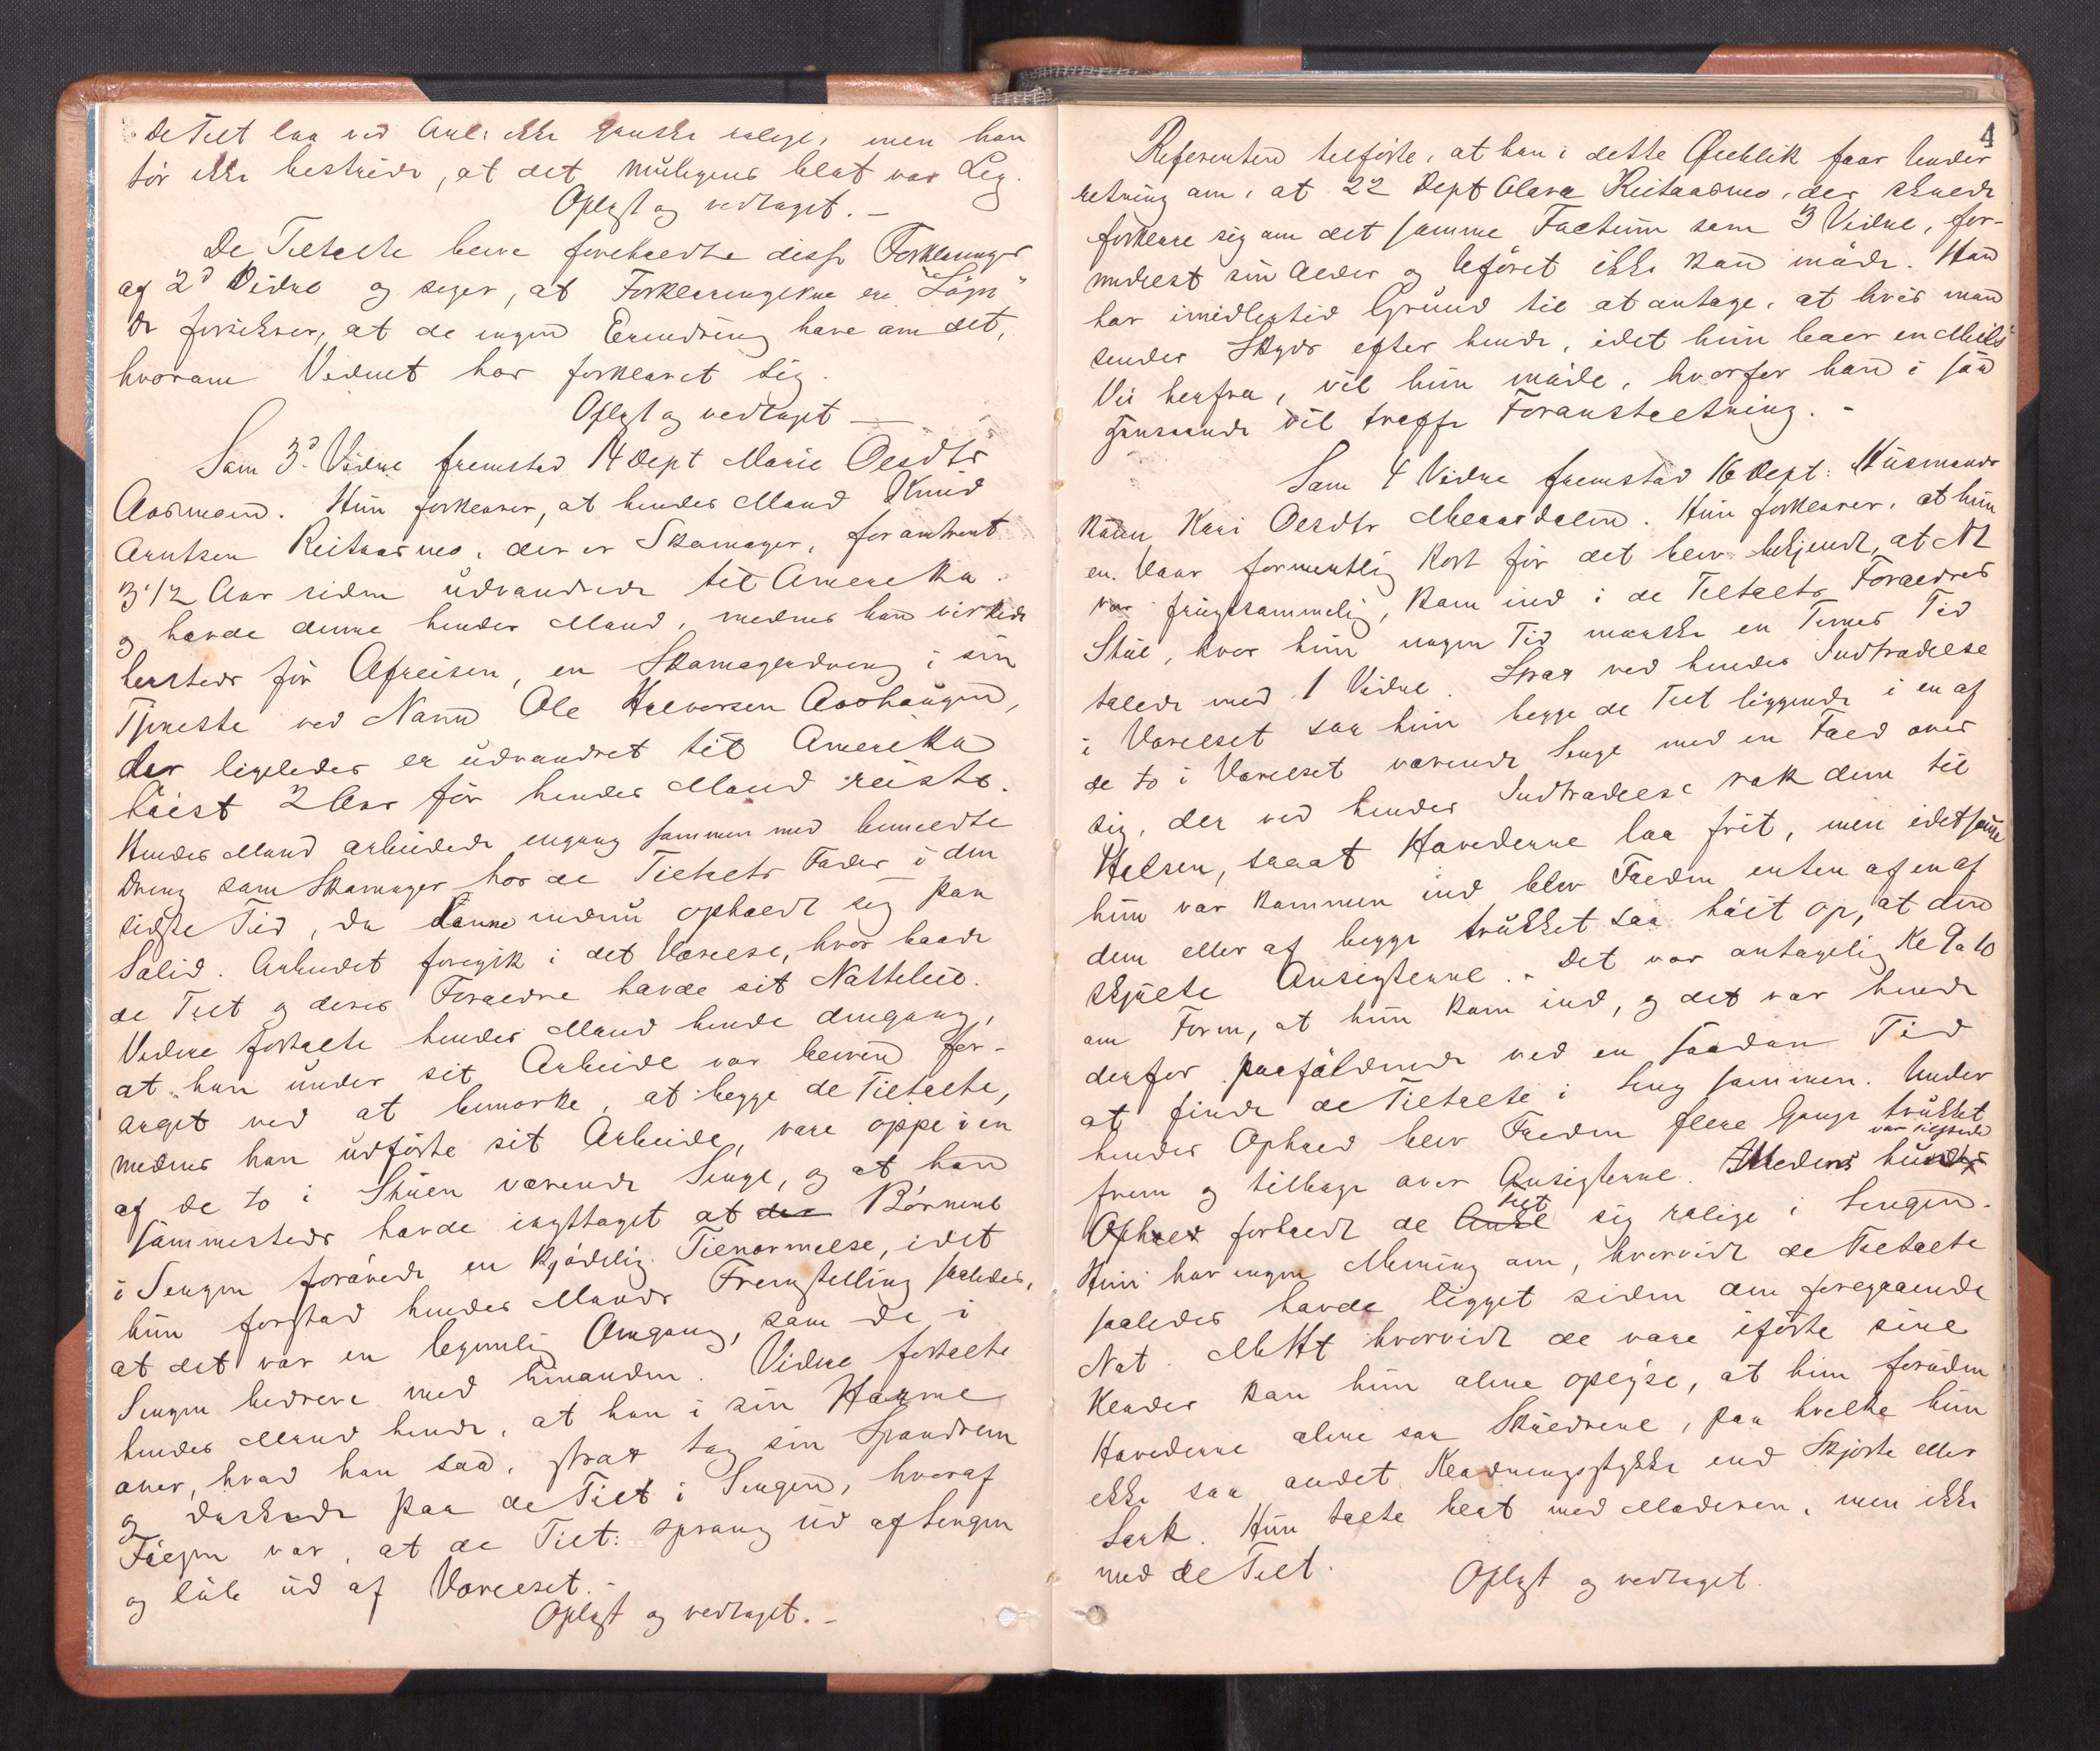 de Tilt laa ved Anl: ikke ganske rolige, men han
tör ikke bestride, at det muligens blot var Leg.
Oplæst og vedtaget. –
De Tiltalte bleve foreholdte disse Forklaringer
af 2d Vidne og siger, at Forklaringerne er "Lögn"
de forsikrer, at de ingen Erindring have om det,
hvorom Vidnet har forklaret sig.
Oplæst og vedtaget –
Som 3d Vidne fremstod 14 Dept Marie Olsdtr
Aasmoen. Hun forklarer, at hendes Mand Knud
Arntsen Reitaasmo, der er Skomager, for omtrent
3 1/2 Aar siden udvandrede til Amerika
og havde denne hendes Mand, medens han virkede
hersteds för Afreisen, en Skomagerdreng i sin
Tjeneste ved Navn Ole Halvorsen Aashaugen,
der ligeledes er udvandret til Amerika
höist 2 Aar för hendes Mand reiste.
Hendes Mand arbeidede engang sammen med bemeldte
Dreng som Skomager hos de Tiltaltes Fader i den
sidste Tid, da denne endnu opholdt sig paa
Solid. Arbeidet foregik i det Værelse, hvor baade
de Tilt og deres Forældre havde sit Natteleie.
Vidne fortalte hendes Mand hende dengang,
at han under sit Arbeide var bleven for-
arget ved at bemærke, at begge de Tiltalte,
medens han udförte sit Arbeide, vare oppe i en
af de to i Stuen værende Senge, og at han
sammesteds havde iagttaget at der Börnene
i Sengen foröved en kjödelig Tilnærmelse, idet
hun forstod hendes Mands Fremstilling saaledes,
at det var en legemlig Omgang, som de i
Sengen bedreve med hinanden. Vidne fortalte
hendes Mand hende, at han i sin Harme
over, hvad han saa, strax tog sin Spandrem
og daskede paa de Tilt i Sengen, hvoraf
Fölgen var, at de Tilt: sprang ud af Sengen
og löb ud af Værelset. –
Oplæst og vedtaget. –
4
Referenten tilförte, at han i dette Öieblik faar Under
retning om, at 22 Dept Olava Reitaasmo, der skulde
forklare sig om det samme Factum som 3 Vidne, for-
medelst sin Alder og Uföret ikke kan möde. Han
har imidlertid Grund til at antage, at hvis man
sender Skyds efter hende, idet hun boer en Mils
Vei herfra, vil hun möde, hvorfor han i saa
Henseende vil træffe Foranstaltning. –
Som 4 Vidne fremstod 16 Dept: Husmands
kone Kari Olsdtr Melaasdalen. Hun forklarer, at hun
en Vaar formentlig kort för det blev bekjendt, at No 2
var frugtsommelig, kom ind i de Tiltaltes Forældres
Stue, hvor hun nogen Tid maaske en Times Tid
talede med 1 Vidne. Strax ved hendes Indtrædelse
i Værelset saa hun begge de Tilt liggende i en af
de to i Værelset værende Senge med en Fæld over
sig, der ved hendes Indtrædelse rak dem til
Halsen, saaat Hovederne laa frit, men idetsamme
hun var kommen ind blev Fælden enten af en af
dem eller af begge trukket saa höit op, at den
skjulte Ansigterne. – Det var antagelig Kl 9 a 10
om Form, at hun kom ind, og det var hende
derfor paafaldende ved en saadan Tid
at finde de Tiltalte i Seng sammen. Under
hendes Ophold blev Fælden flere Gange trukket
frem og tilbage over Ansigterne. Medens hun var tilstede
Ophold forholdt de Anke Tilt sig rolige i Sengen.
Hun har ingen Mening om, hvorvidt de Tiltalte
saaledes havde ligget siden den foregaaende
Nat. Mht hvorvidt de vare iförte sine
Klæder kan hun alene oplyse, at hun foruden
Hovederne alene saa Skuldrene, paa hvilke hun
ikke saa andet Klædningsstykke end Skjorte eller
Særk. Hun talte blot med Moderen, men ikke
med de Tilt.
Oplæst og vedtaget.